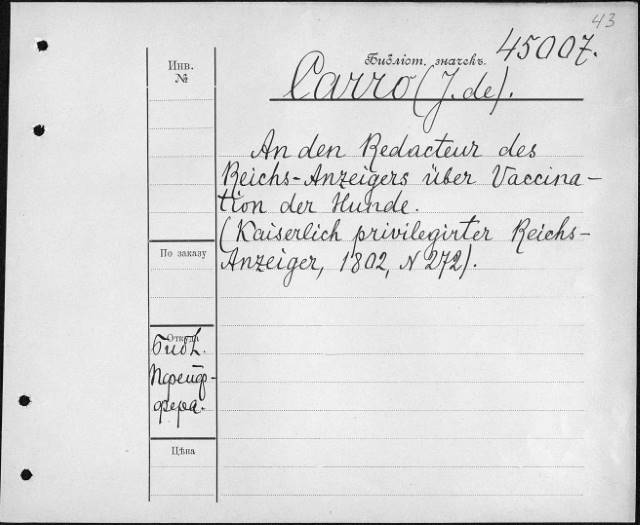 43
45007.
Библіот. значекъ.
Инв.
№
Carro (J. de).
An den Redacteur des
Reichs-Anzeigers über Vaccina-
tion der Hunde.
(Kaiserlich privilegirter Reichs-
Anzeiger, 1802, N 272).
По заказу
Откуда
Библ.
Пфейф-
фера.
Цѣна